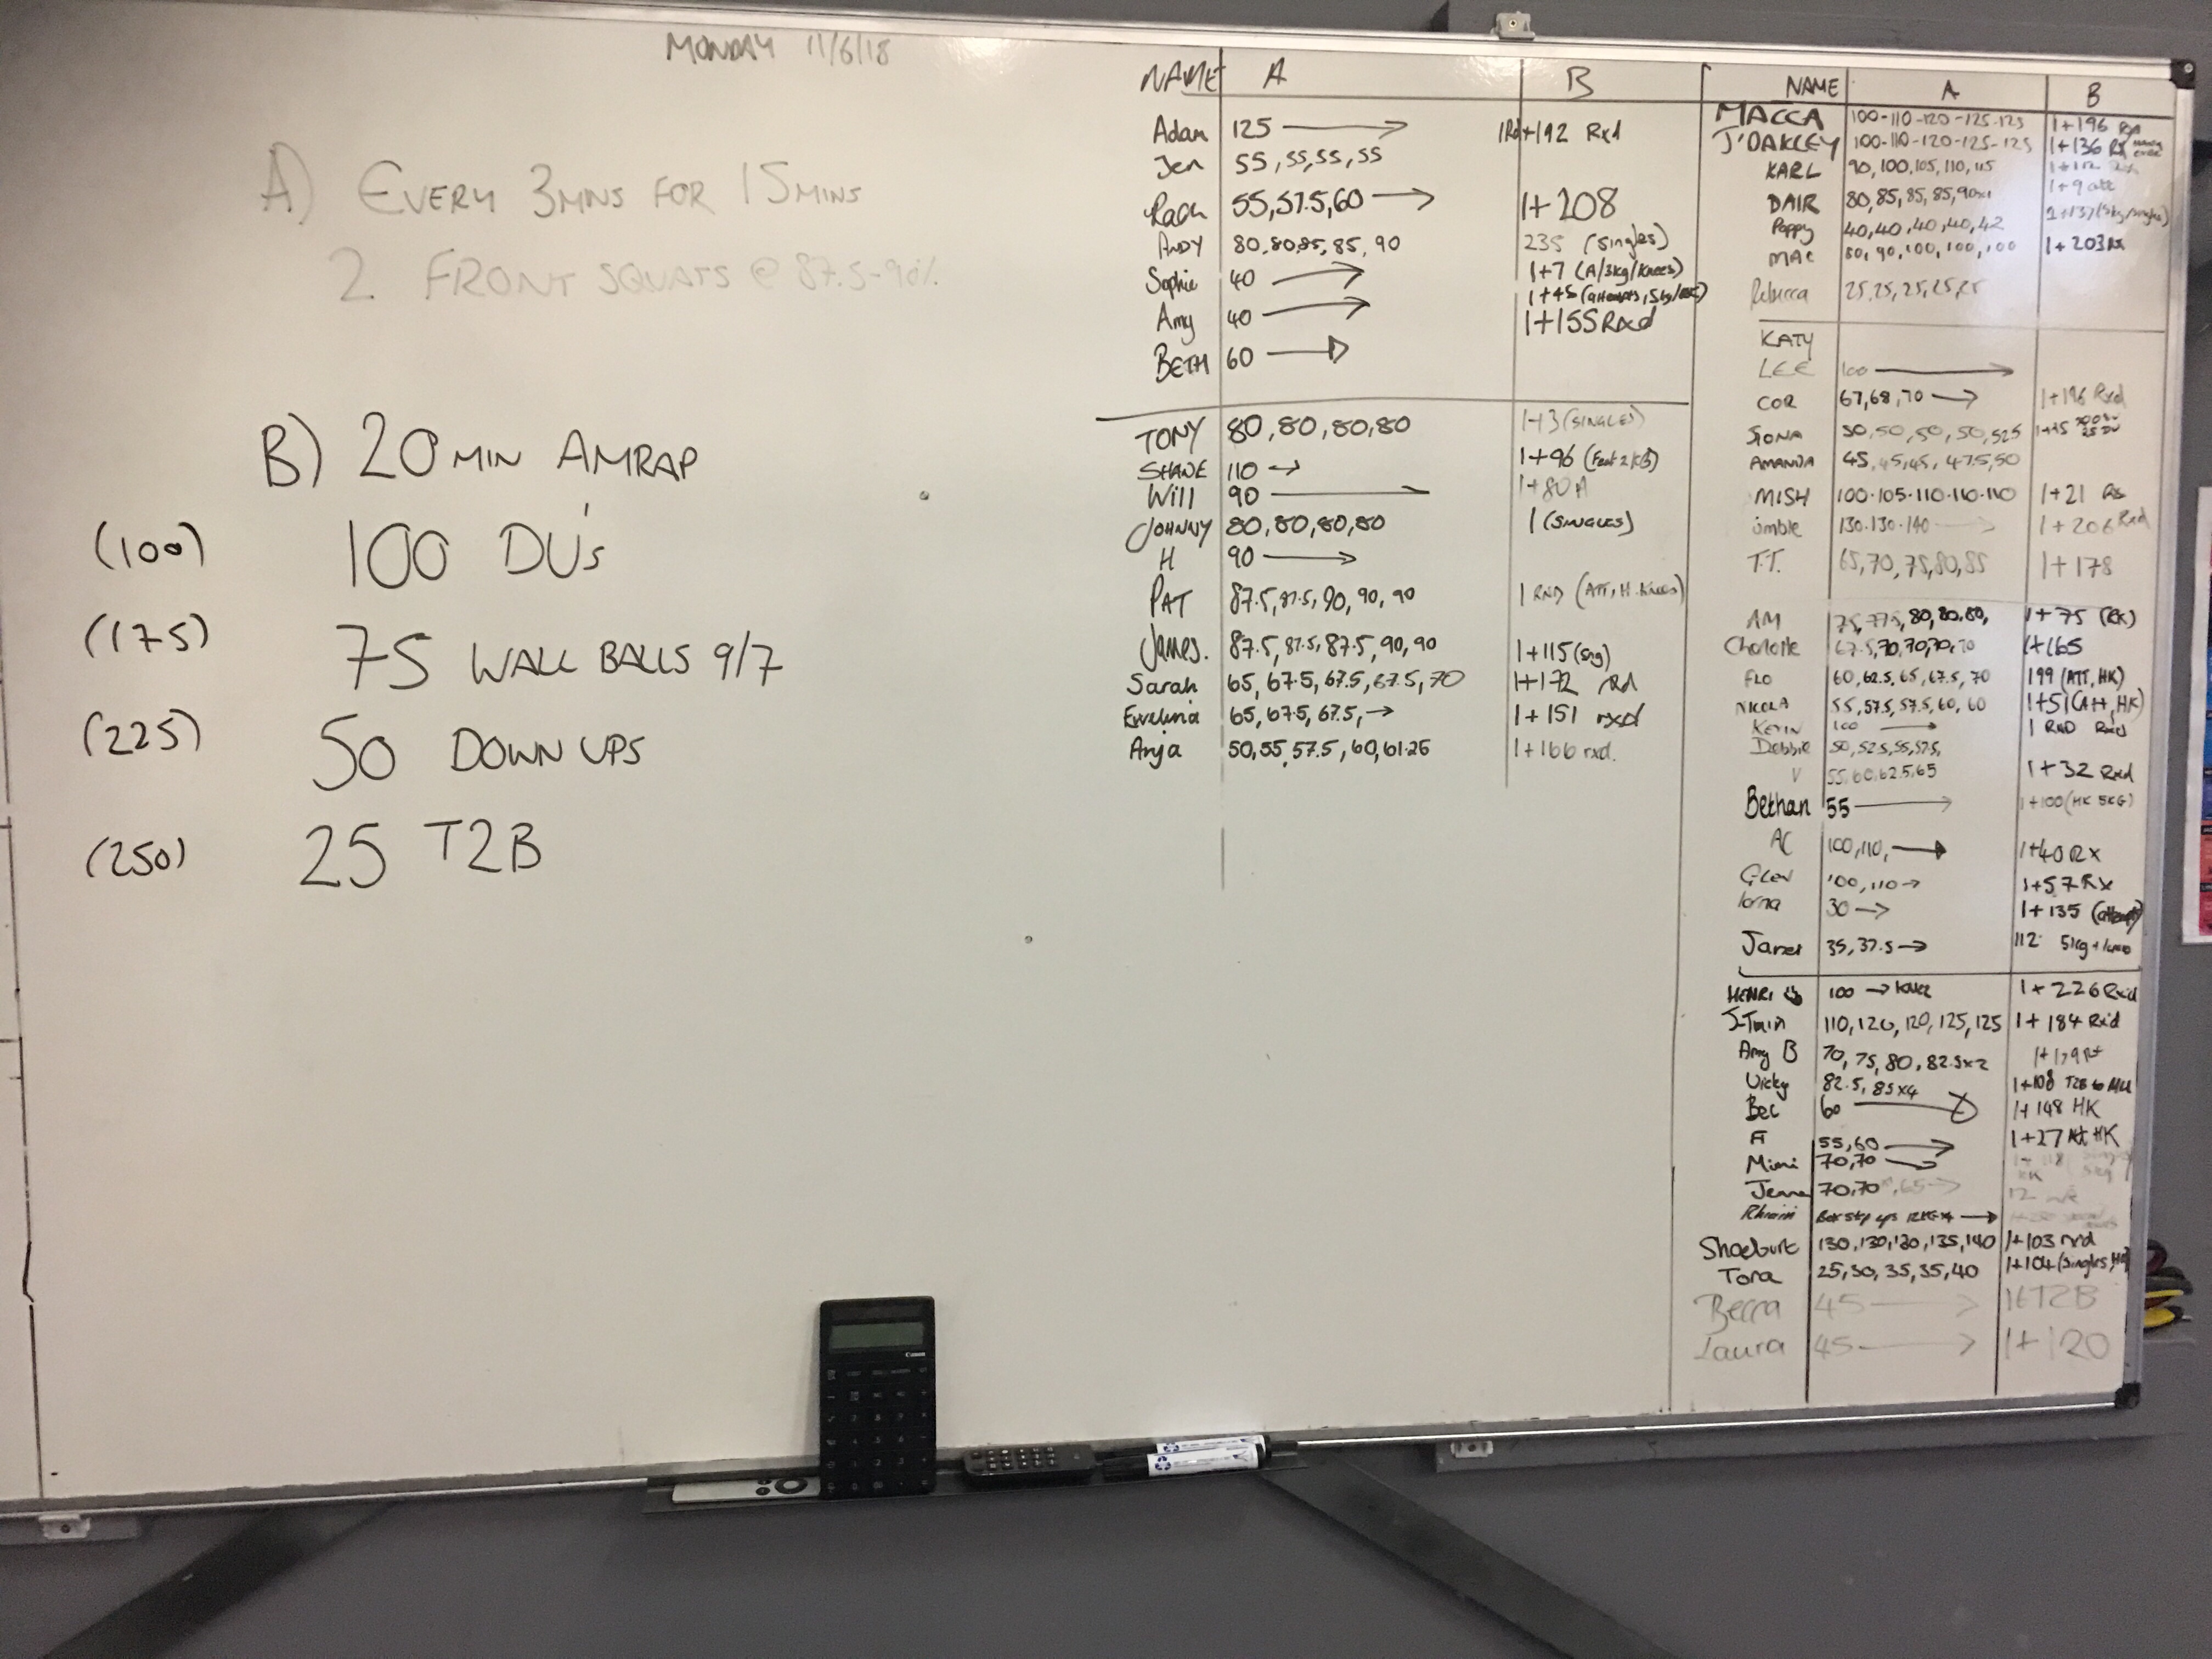 MONDAY 11/6/18
A) EVERY 3MINS FOR 15MINS
2 FRONT SQUATS @ 87.5-90%
B) 20 MIN AMRAP
(100) 100 DU's
(175) 75 WALL BALLS 9/7
(225) 50 DOWN UPS
(250) 25 T2B
NAME A B
Adam 125 → 1Rd+192 Rxd
Jen 55,55,55,55
Rach 55,57.5,60 → 1+208
ANDY 80,80,85,85,90 235 (Singles)
Sophie 40 → 1+7 (A/3kg/Knees)
1+45 (attempts, 5kg/
Amy 40 → 1+155 Rxd
BETH 60 →
TONY 80,80,80,80 1+3 (SINGLES)
SHANE 110 → 1+96
Will 90 → 1+80 A
JOHNNY 80,80,80,80 1 (SINGLES)
H 90 →
PAT 87.5,87.5,90,90,90 1 RND (ATT, H.Knees)
James. 87.5,87.5,87.5,90,90 1+115 (Sng)
Sarah 65,67.5,67.5,67.5,70 1+172 Rd
Ewelina 65,67.5,67.5,→ 1+151 rxd
Anja 50,55,57.5,60,61.25 1+166 rxd.
NAME A B
MACCA 100-110-120-125-125 1+196 Rx
J'OAKLEY 100-110-120-125-125 1+136 Rx
KARL 90,100,105,110,115
DAIR 80,85,85,85,90x1 1+9 att
Poppy 40,40,40,40,42 1+137 (5kg/singles)
MAC 80,90,100,100,100 1+203 Rx
Rebecca 25,25,25,25,25
KATY
LEE 100 →
COR 67,68,70 → 1+196 Rxd
FIONA 50,50,50,50,52.5
AMANDA 45,45,45,47.5,50
MISH 100-105-110-110-110 1+21 Rx
Wimble 130-130-140 → 1+206 Rxd
T.T. 65,70,75,80,85 1+178
AM 75,77.5,80,80,80, 1+75 (RX)
Charlotte 67.5,70,70,70,70 1+165
FLO 60,62.5,65,67.5,70 199 (ATT, HK)
NICOLA 55,57.5,57.5,60,60 1+51 (Att, HK)
KEVIN 100 → 1 RND Rxd
Debbie 50,52.5,55,57.5,
V 55,60,62.5,65 1+32 Rxd
Bethan 55 → 1+100 (HK 5KG)
AC 100,110, → 1+40 RX
GLEN 100,110 → 1+57 RX
lorna 30 → 1+135 (attempts)
Janet 35,37.5 → 112 5kg+
HENRI 100 → 1+226 Rxd
J-Train 110,120,120,125,125 1+184 Rxd
Amy B 70,75,80,82.5x2
Vicky 82.5,85x4 1+108 T2B to MU
Bec 60 → 1+148 HK
Fi 55,60 → 1+27 Att HK
Mimi 70,70 →
Jenna 70,70,65 → 12
Box step ups 12KG x4 →
Shoeburt 130,130,130,135,140 1+103 rxd
Tora 25,30,35,35,40 1+104 (Singles, HK)
Becca 45 → 1+T2B
Laura 45 → 1+120
Canon